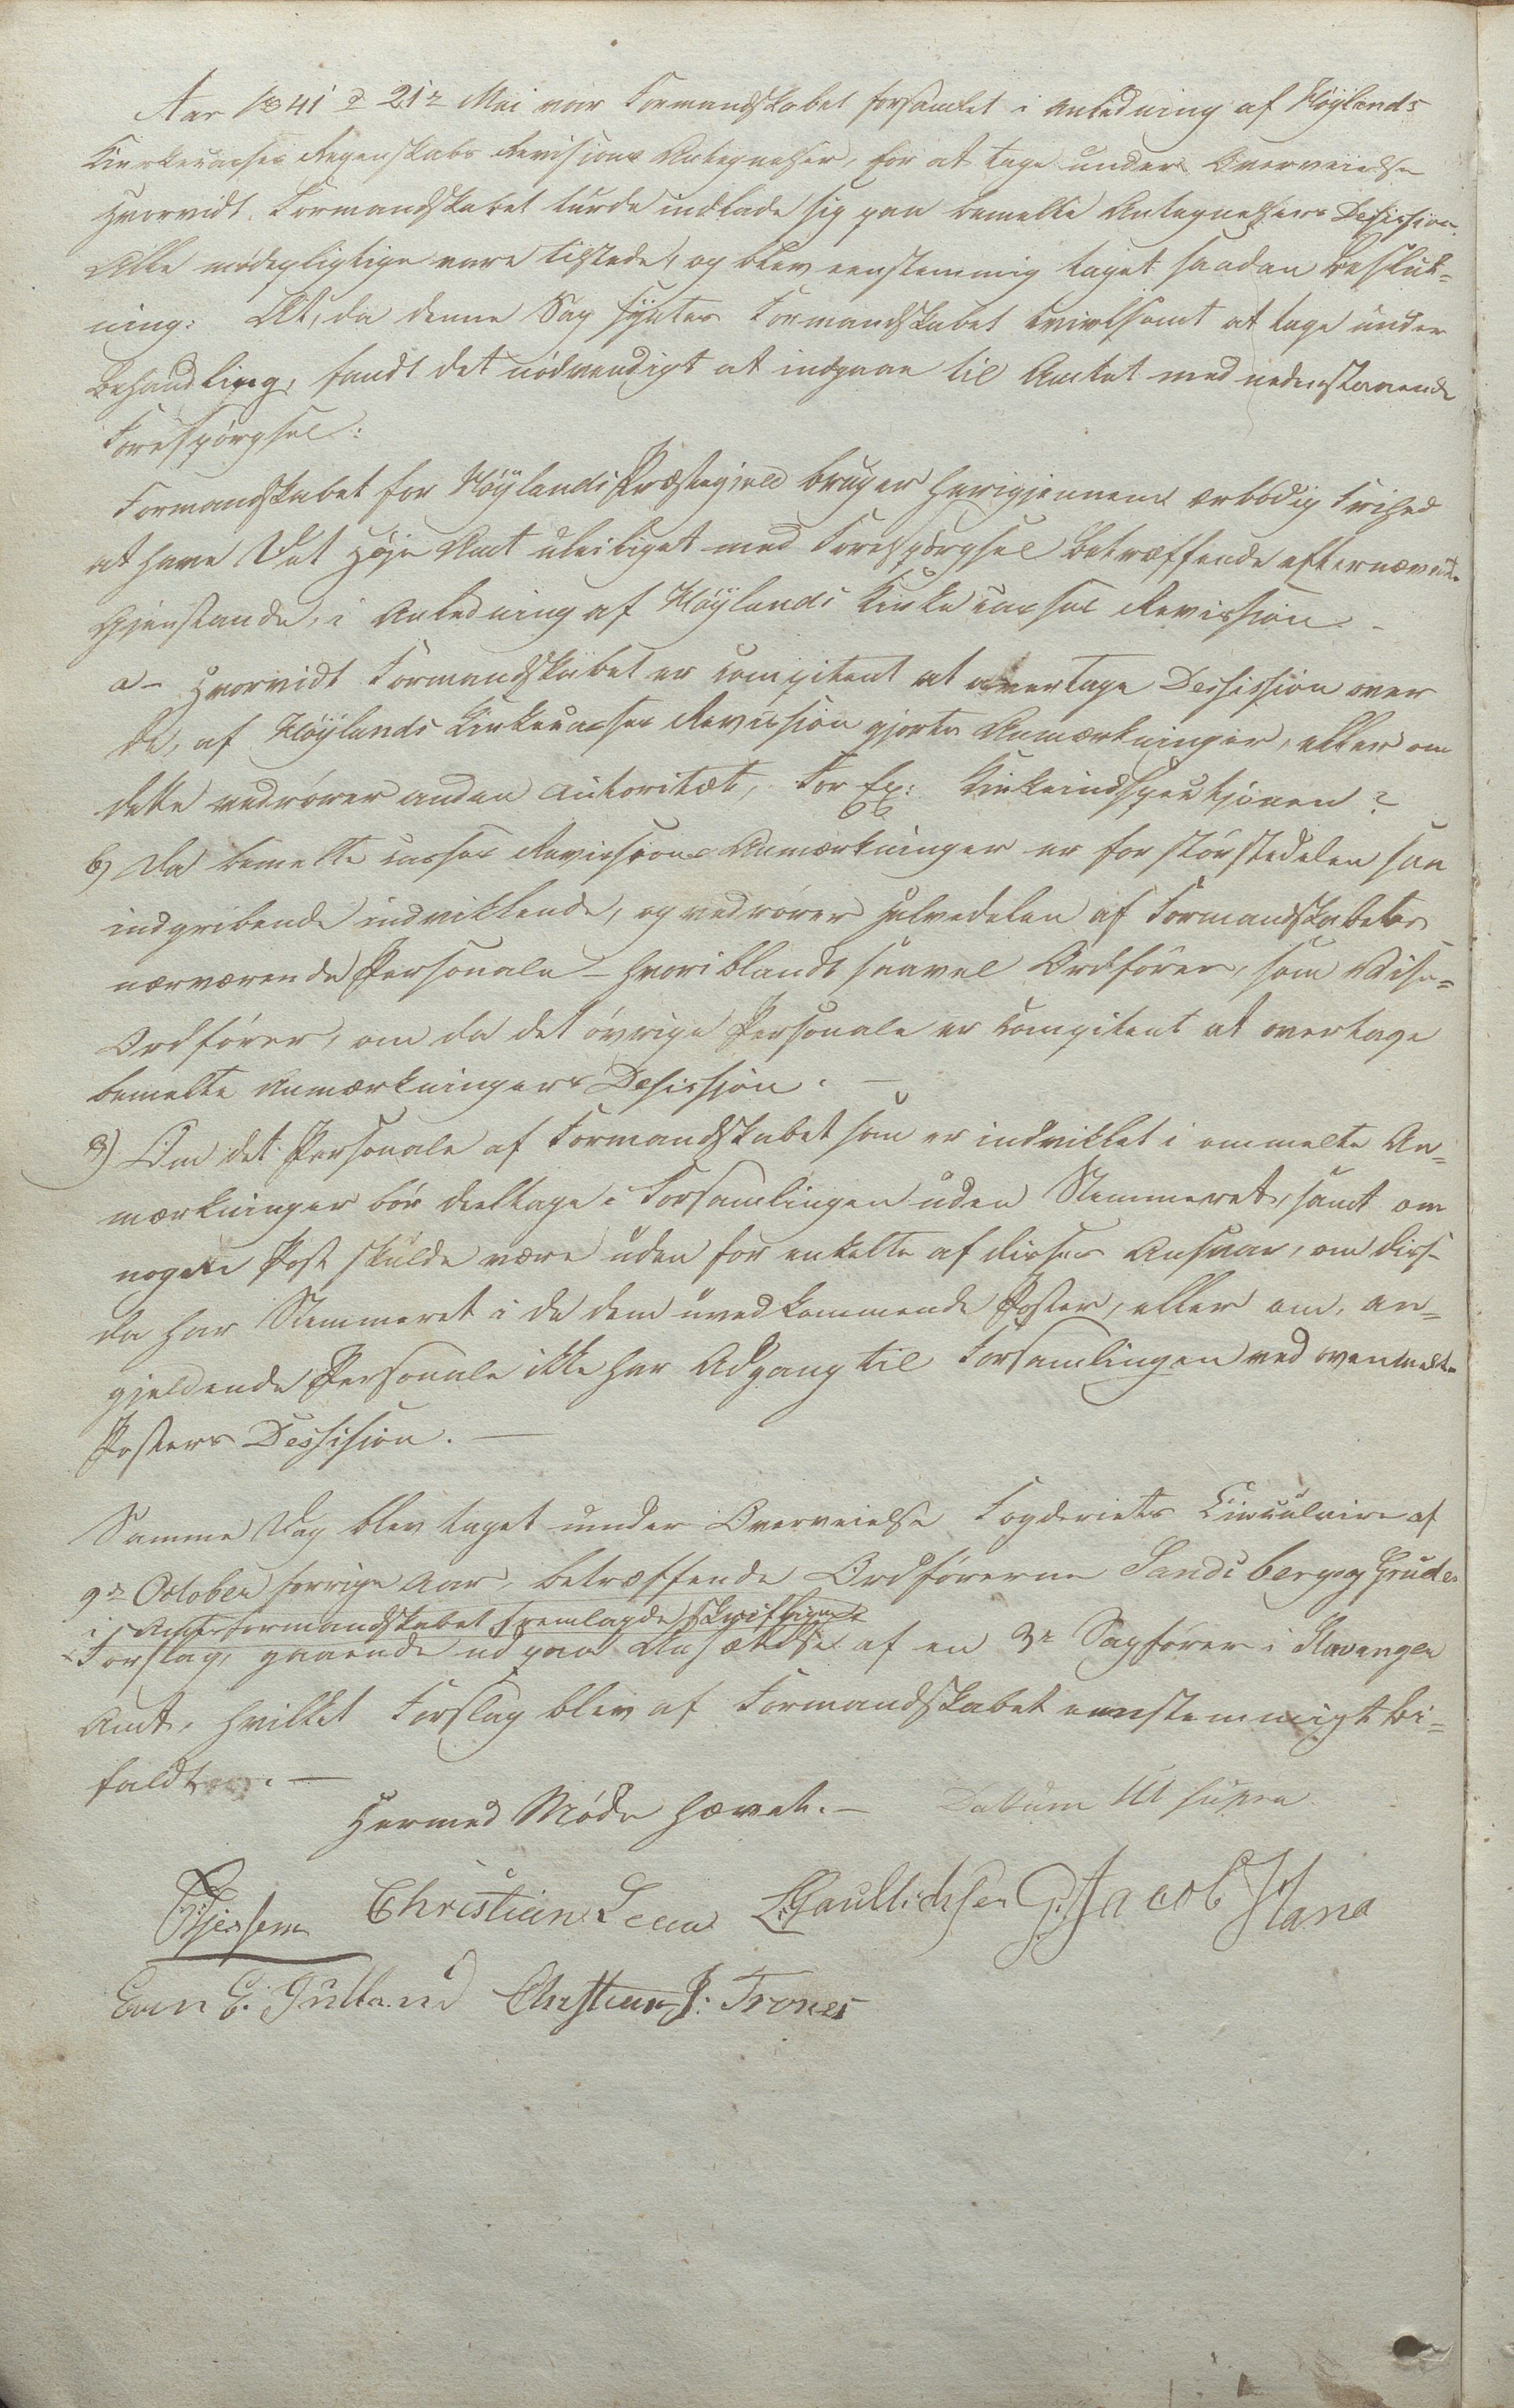 Aar 1841 d 21de Mai var Formandskabet forsamlet i Anledning af Höÿlands
Kirkecasses Regenskabs Revisions Antegnelser, for at tage under Overveielse
hvorvidt Formandskabet turde indlade sig paa bemelte Antegnelsers Desision.
Alle mødepligtige vare tilstede, og blev eenstemmig taget saadan Beslut=
ning: At, da denne Sag syntes Formandskabet tvivlsomt at tage under
Behandling, fandt det nødvendigt at indgaae til Amtet med nedenstaaende
Forespørgsel:
Formandskabet for Höÿlands Præstegjeld bruger herigjennem ærbødig Frihed
at have Det Høje Amt uleiliget med Forespørgsel betræffende efternævnte
Gjenstande, i Anledning af Höÿlands Kirkecasses Revission –
a – Hvorvidt Formandskabet er compitent at overtage Dessission over
de, af Höÿlands Kirkecasses Revission gjorte Anmærkninger, eller om
dette vedrører anden Autoritæt, For Ex: Kirkeindspecktjonen?
b) Da bemelte Casses Revissions Anmærkninger er for størstedelen saa
indgribende indviklende, og vedrører halvedelen af Formandskabets
nærværende Personale – hvoriblandt saavel Ordfører, som Vise=
Ordfører, om da det øvrige Personale er compitent at overtage
bemelte Anmærkningers Desissjon. –
3) Om det Personale af Formandskabet som er indviklet i ommelte An=
mærkninger bør deeltage i Forsamlingen uden Stemmeret, samt om
nogen Post skulde være uden for enkelte af disses Ansvar, om diss–
da har Stemmeret i de dem uvedkommende Poster, eller om, an=
gjeldende Personale ikke har Adgang til Forsamlingen ved ovenmelte
Posters Dessision. –
Samme Dag blev taget under Overveielse Fogderiets Circulaire af
9de October forrige Aar, betræffende Ordførerne Sandsberg og Grudes
i Amtsformandskabet fremlagde skriftlige
Forslag, gaaende ud paa Ansættelse af en 3de Sagfører i Stavanger
Amt, hvilket Forslag blev af Formandskabet eenstemmigt bi=
faldt. –
Hermed Møde hævet. – Datum Ut supra
Christian Lena L. Gaullichsen G. Jacob Hana
Even E. Jutland Christian J: Trones